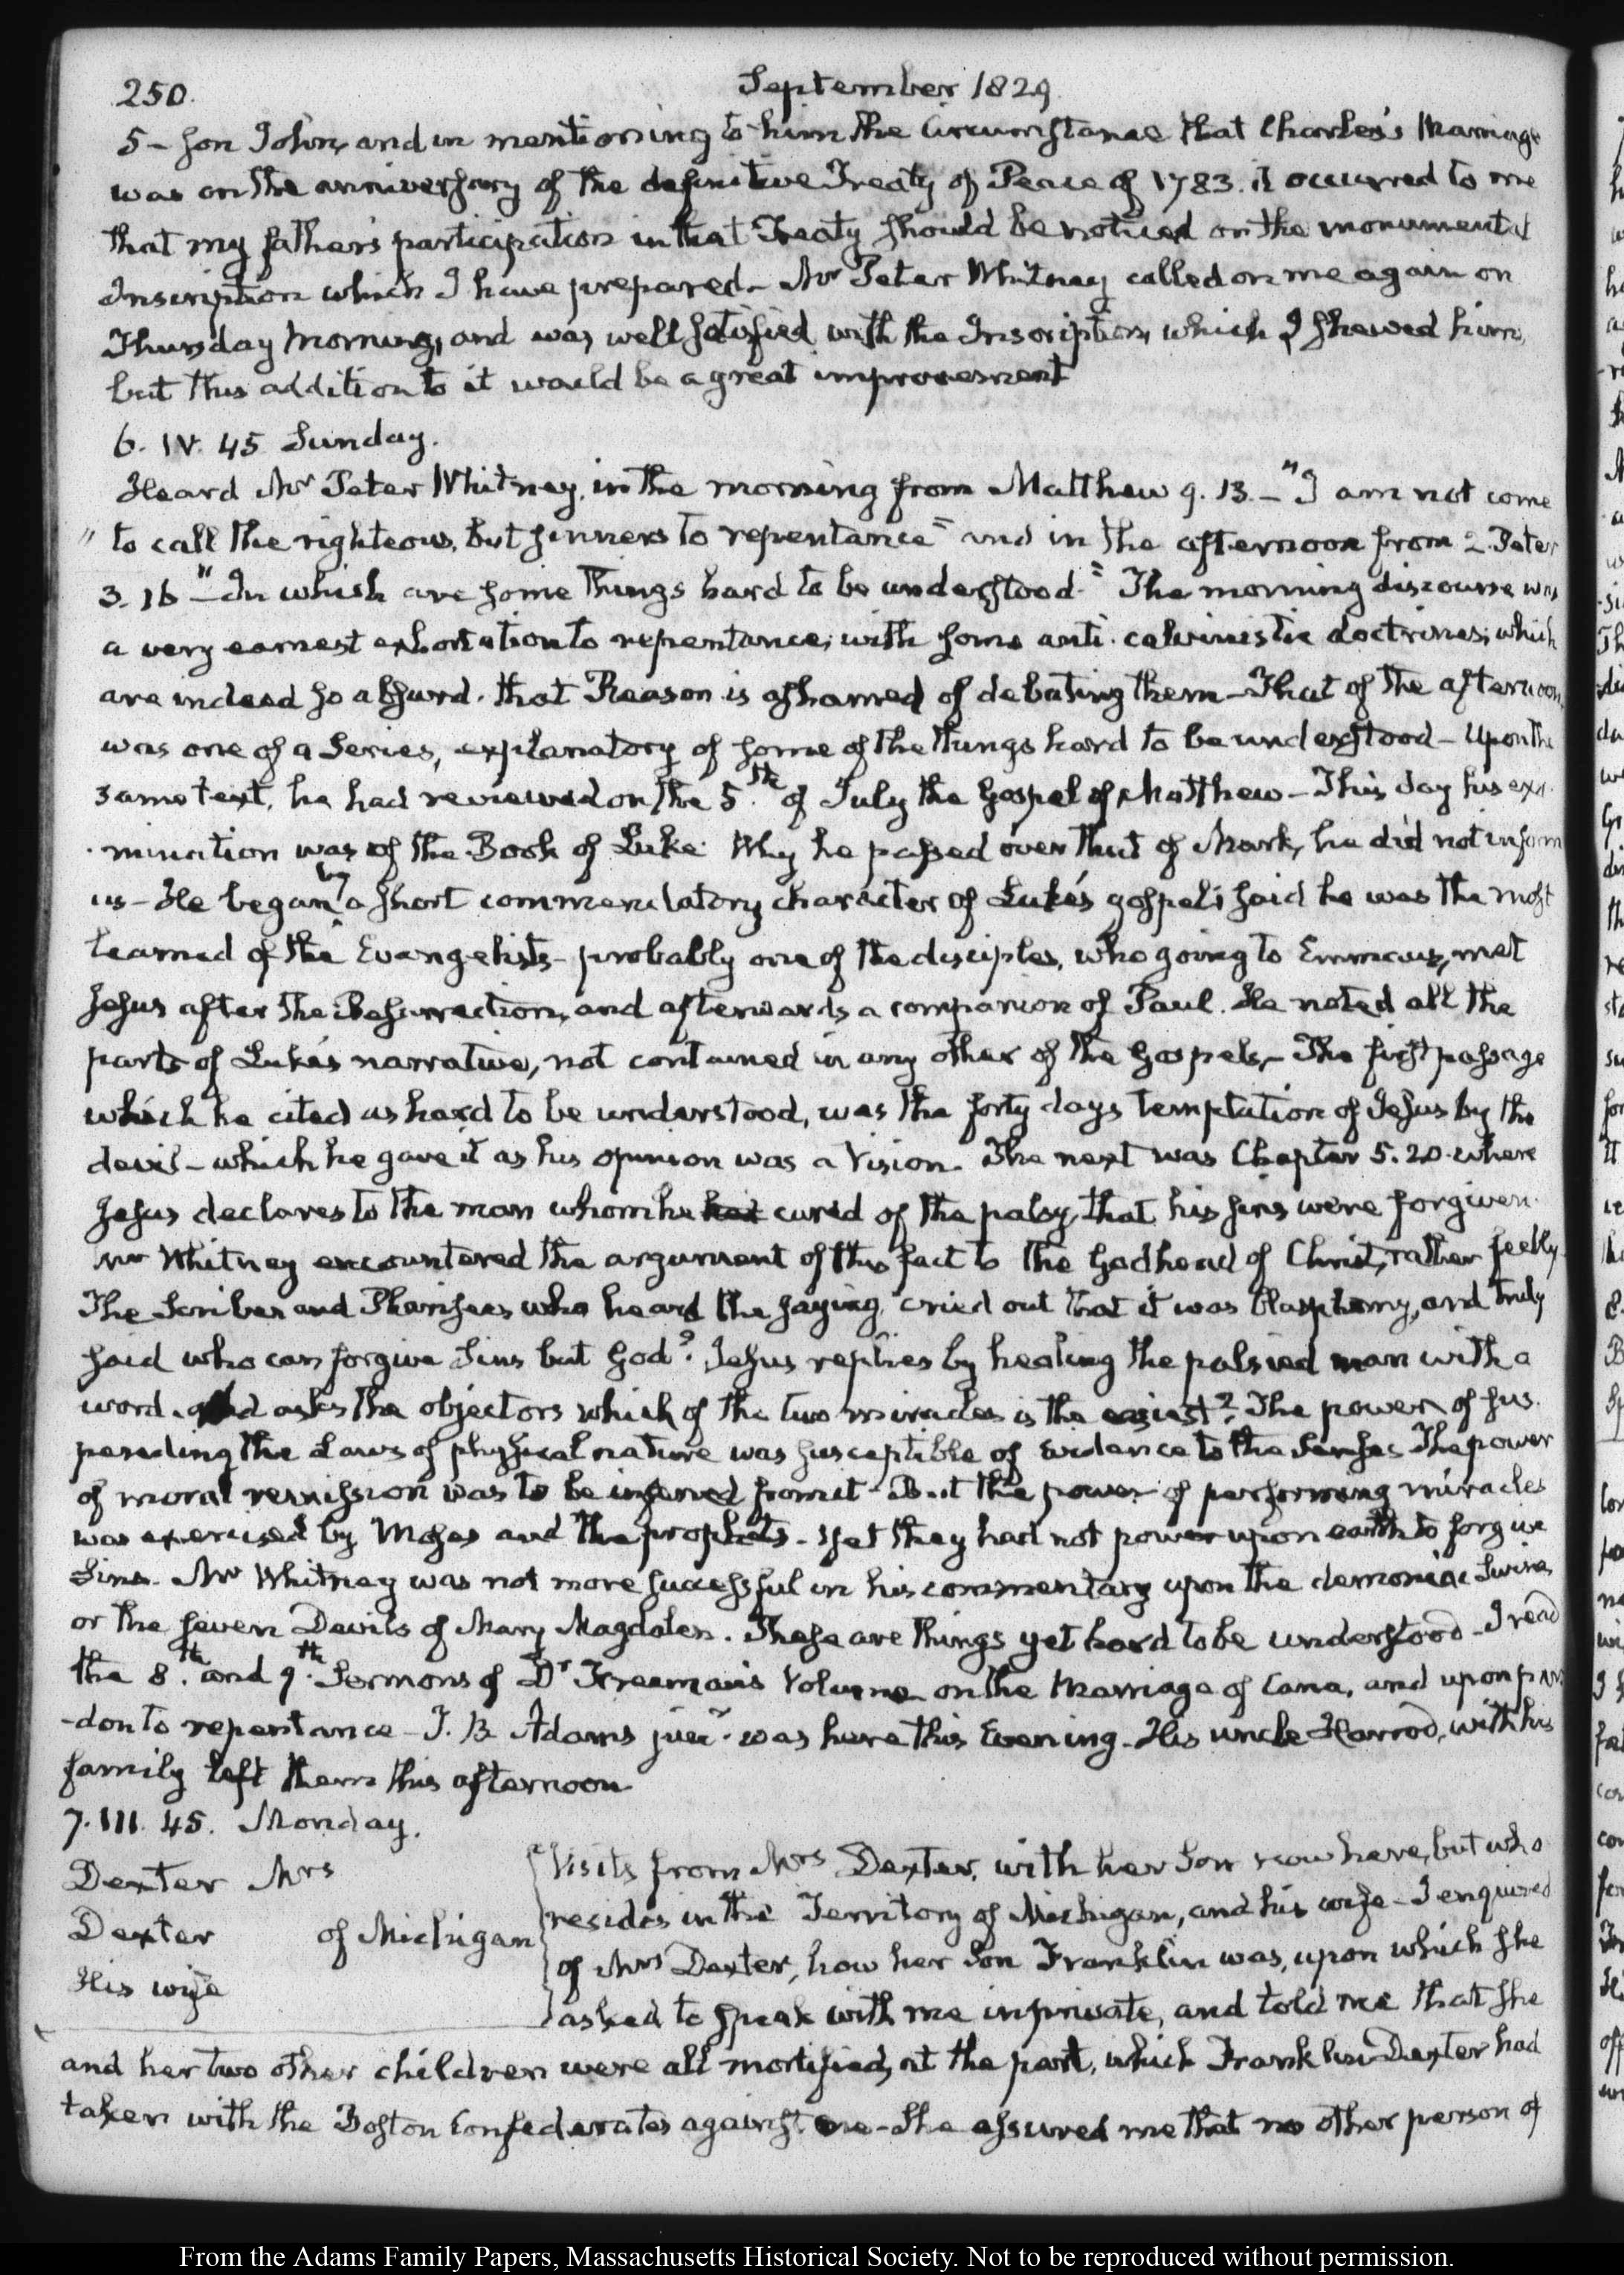 250.
September 1829
5 - son John, and in mentioning to him the Circumstance that Charles's Marriage
was on the anniversary of the definitive Treaty of Peace of 1783. it occurred to me
that my father's participation in that Treaty should be noticed on the monumental
Inscription which I have prepared - Mr Peter Whitney called on me again on
Thursday Morning, and was well satisfied with the Inscription, which I shewed him,
but this addition to it would be a great improvement
6. IV. 45 Sunday.
Heard Mr Peter Whitney, in the morning from Matthew 9. 13. - "I am not come
" to call the righteous, but sinners to repentance" and in the afternoon from 2. Peter
3. 16 "- In which are some things hard to be understood." The morning discourse was
a very earnest exhortation to repentance; with some anti-calvinistic doctrines; which
are indeed so absurd. that Reason is ashamed of debating them - That of the afternoon,
was one of a Series, explanatory of some of the things hard to be understood - Upon the
same text, he had reviewed on the 5.th of July the Gospel of Matthew - This day his exa-
-mination was of the Book of Luke. Why he passed over that of Mark, he did not inform
us - He began by a short commendatory character of Luke's gospel; said he was the most
learned of the Evangelists - probably one of the disciples, who going to Emmaus, met
Jesus after the Resurrection, and afterwards a companion of Paul. He noted all the
parts of Luke's narrative, not contained in any other of the Gospels, - The first passage
which he cited as hard to be understood, was the forty days temptation of Jesus by the
devil - which he gave it as his opinion was a Vision. The next was Chapter 5. 20. where
Jesus declares to the man whom he had cured of the palsy, that his sins were forgiven.
Mr Whitney encountered the argument of this fact to the Godhead of Christ, rather feebly.
The Scribes and Pharisees who heard the saying, cried out that it was blasphemy, and truly
said who can forgive Sins but God? Jesus replies by healing the palsied man with a
word. and asks the objectors which of the two miracles is the easiest? The power of sus-
pending the Laws of physical nature was susceptible of evidence to the Senses The power
of moral remission was to be inferred from it - But the power of performing miracles
was exercised by Moses and the prophets - yet they had not power upon earth to forgive
Sins - Mr Whitney was not more successful in his commentary upon the demoniac Swine,
or the seven Devils of Mary Magdalen. These are things yet hard to be understood - I read
the 8.th and 9.th Sermons of Dr Freeman's Volume on the Marriage of Cana, and upon par-
-don to repentance - J. B. Adams junr. was here this Evening - His uncle Harrod, with his
family left them this afternoon.
7. III. 45. Monday.
Dexter Mrs
Dexter of Michigan
His wife
Visits from Mrs Dexter, with her Son now here, but who
resides in the Territory of Michigan, and his wife - I enquired
of Mrs Dexter, how her Son Franklin was, upon which she
asked to speak with me in private, and told me that she
and her two other children were all mortified, at the part, which Franklin Dexter had
taken with the Boston Confederates against me - She assured me that no other person of
From the Adams Family Papers, Massachusetts Historical Society. Not to be reproduced without permission.